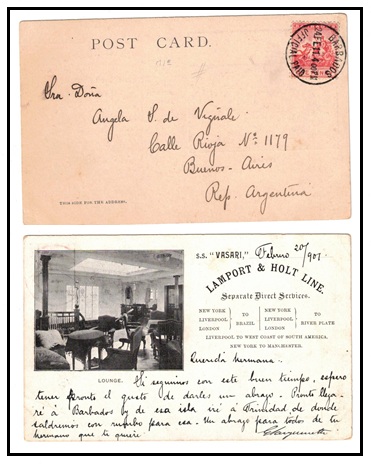 POST CARD.
BARBADOS
Sra. Doña
Angela S. de Vignale
Calle Rioja Nº 1179
Buenos-Aires
Rep. Argentina
THIS SIDE FOR THE ADDRESS.
S.S. "VASARI," Febrero 20/907
LAMPORT & HOLT LINE.
Separate Direct Services.
NEW YORK LIVERPOOL LONDON } TO BRAZIL { NEW YORK LIVERPOOL LONDON } TO RIVER PLATE
LIVERPOOL TO WEST COAST OF SOUTH AMERICA.
NEW YORK TO MANCHESTER.
LOUNGE.
Querida hermana.
Hi seguimos con este buen tiempo, espero
tener pronto el gusto de darles un abrazo. Pronto llega-
ré á Barbados y de esa isla iré á Trinidad de donde
saldremos con rumbo para esa. Un abrazo para todos de tu
hermano que te quiere